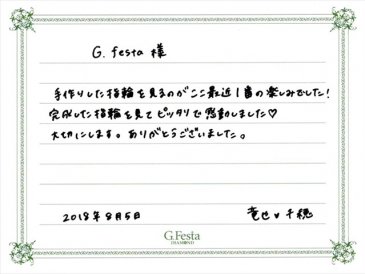 G. festa 様
手作りした指輪を見るのがここ最近1番の楽しみでした!
完成した指輪を見てピッタリで感動しました♡
大切にします。ありがとうございました。
2018年8月5日 竜也♥千穂
G.Festa
DIAMOND